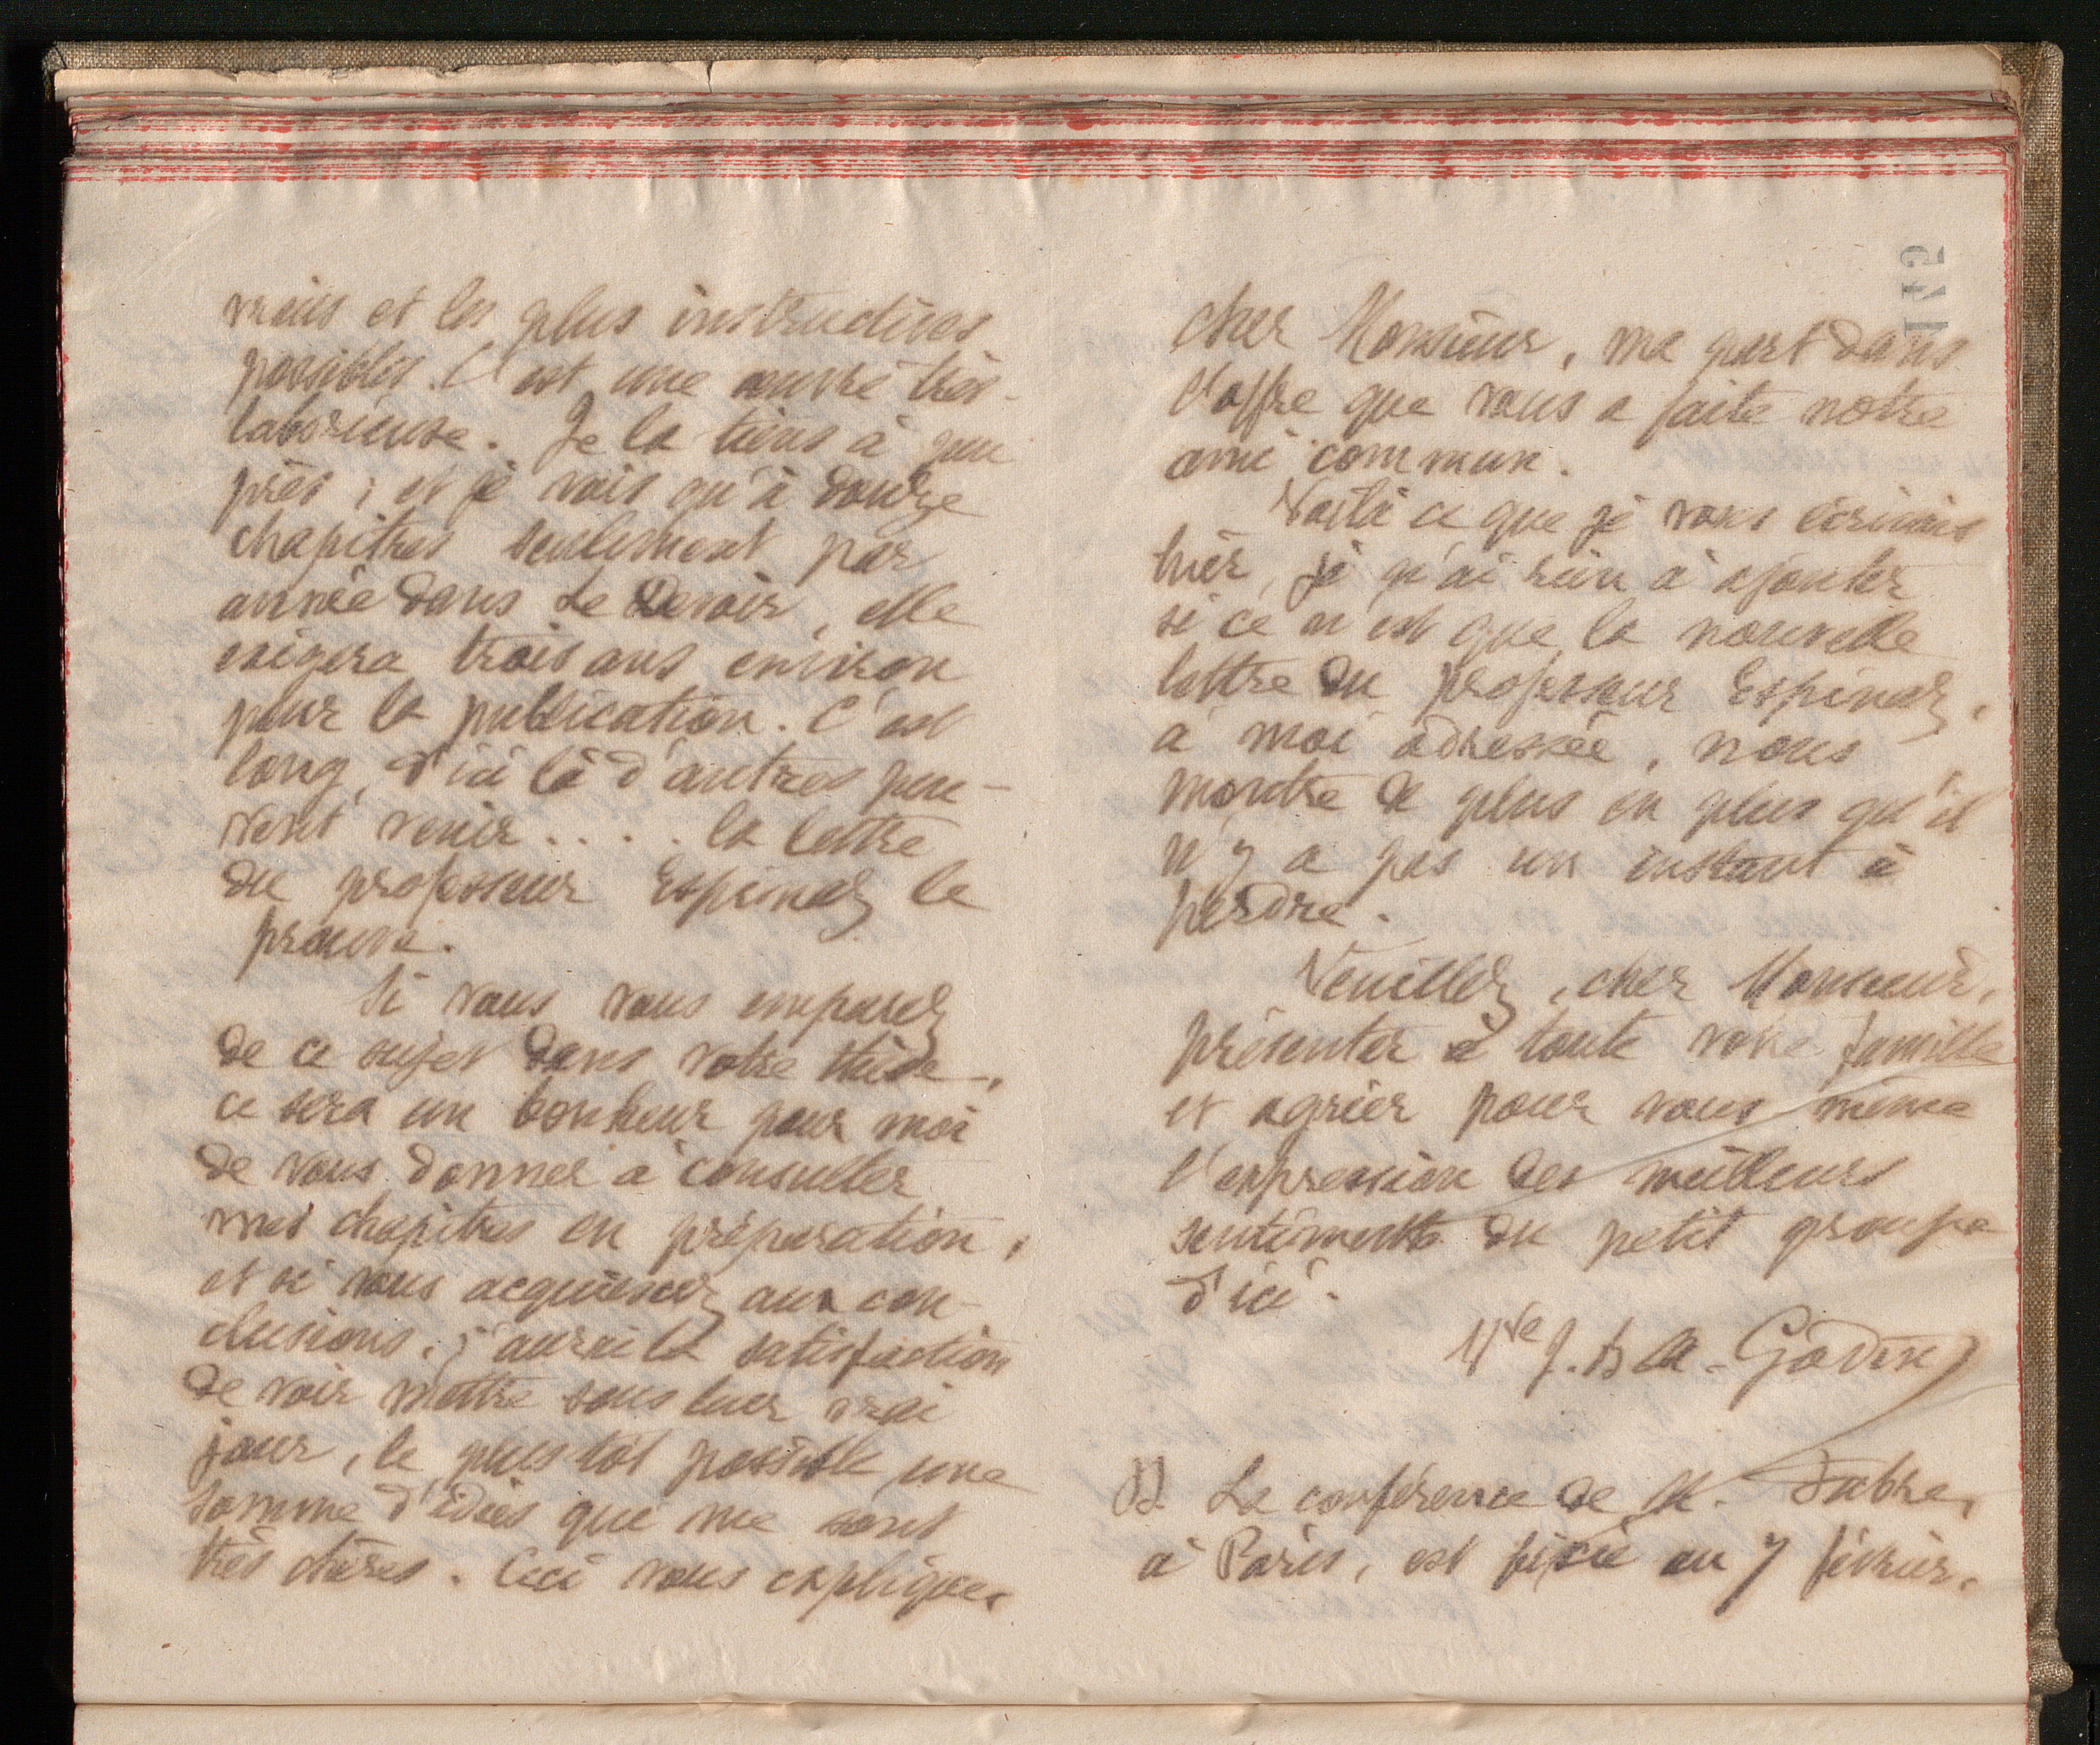 mais et les plus instructives
possibles. C'est une œuvre très-
laborieuse. Je la tiens à peu
près ; et je vois qu'à douze
chapitres seulement par
année dans Le Devoir, elle
exigera trois ans environ
pour la publication. C'est
long, d'ici là d'autres peu-
vent venir..... la lettre
du professeur Espinas le
prouve.
Si vous vous emparez
de ce sujet dans votre thèse,
ce sera un bonheur pour moi
de vous donner à consulter
mes chapitres en préparation,
et si vous acquiescez aux con-
clusions, j'aurai la satisfaction
de voir mettre sous leur vrai
jour, le plus tôt possible, une
somme d'idées que me sont
très chères. Ceci vous explique,
cher Monsieur, ma part dans
l'offre que vous a faite notre
ami commun.
Voilà ce que je vous écrivais
hier, je n'ai rien à ajouter
si ce n'est que la nouvelle
lettre du professeur Espinas,
à moi adressée, nous
montre de plus en plus qu'il
n'y a pas un instant à
perdre.
Veuillez, cher Monsieur,
présenter à toute votre famille
et agréer pour vous même
l'expression des meilleurs
sentiments du petit groupe
d'ici.
Vve J. B. A. Godin
P.S. La conférence de M. Fabre,
à Paris, est fixée au 7 février.